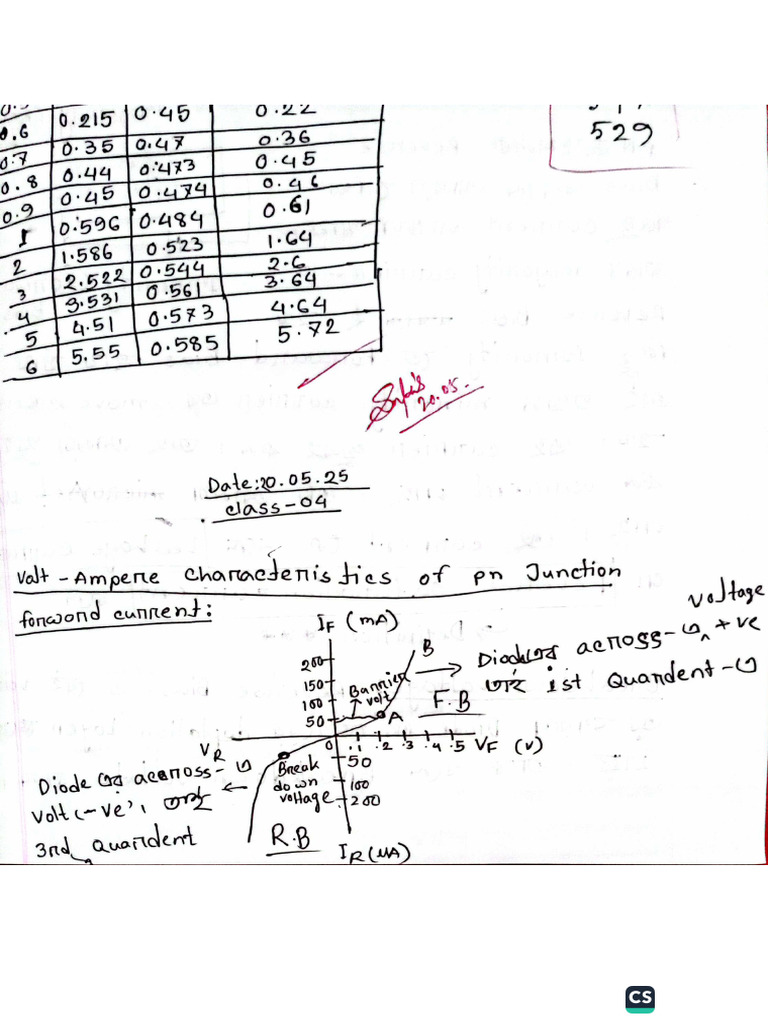 529
0.6 0.215 0.45 0.22
0.7 0.35 0.47 0.36
0.8 0.44 0.473 0.45
0.9 0.45 0.474 0.46
1 0.596 0.484 0.61
2 1.586 0.523 1.64
3 2.522 0.544 2.6
4 3.531 0.561 3.64
5 4.51 0.573 4.64
6 5.55 0.585 5.72
20.05.
Date:20.05.25
class-04
Valt-Ampere characteristics of pn Junction
forword current:
I_F (mA)
200
150
100
50
Barrier volt
A
B
F.B
Diode এর across-এ voltage +ve
তাই 1st Quandent-এ
0 .1 .2 .3 .4 .5 V_F (V)
V_R
50
100
200
Break down voltage
Diode এর across-এ
volt (-ve), তাই
3rd Quardent
R.B
I_R (μA)
CS